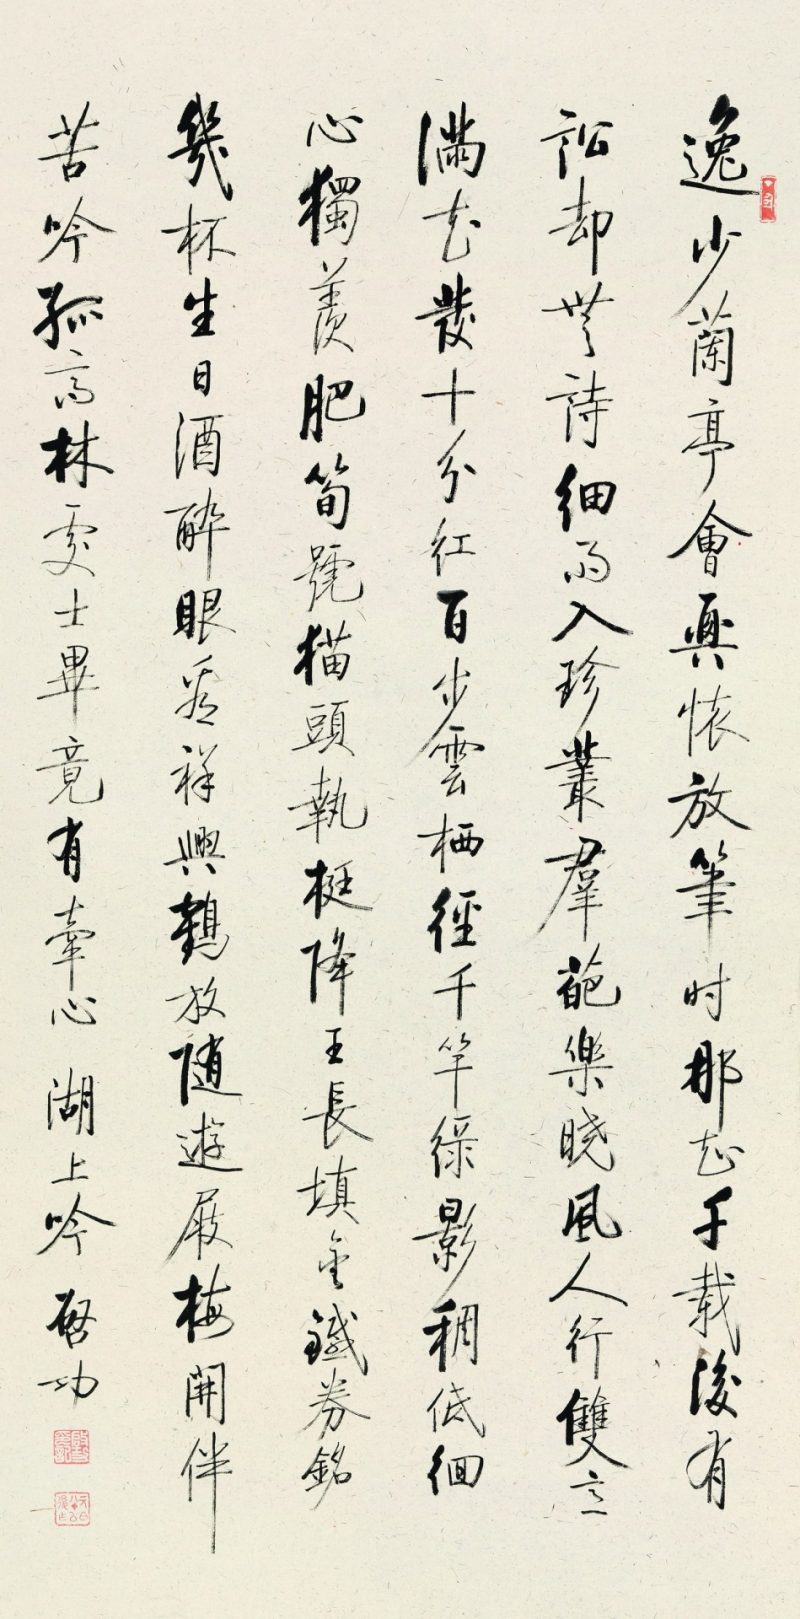 逸少蘭亭會興懷放筆时那知千載後有
訟却無詩細雨入珍叢羣葩樂曉風人行雙意
滿花發十分紅百步雲栖徑千竿綠影稠低徊
心獨羨肥筍號猫頭執梃降王長填金鐵券銘
幾杯生日酒醉眼看祥興鶴放随遊屐梅開伴
苦吟孤高林處士畢竟有牽心 湖上吟 啓功